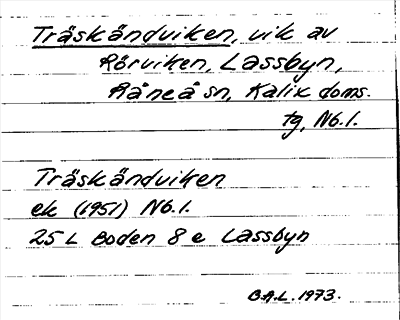 Träskändviken, vik av
Rörviken, Lassbyn,
Råneå sn, Kalix doms.
tg, Nb.l.
Träskändviken
ek (1951) Nb.l.
25 L Boden 8 e Lassbyn
B.A.L. 1973.